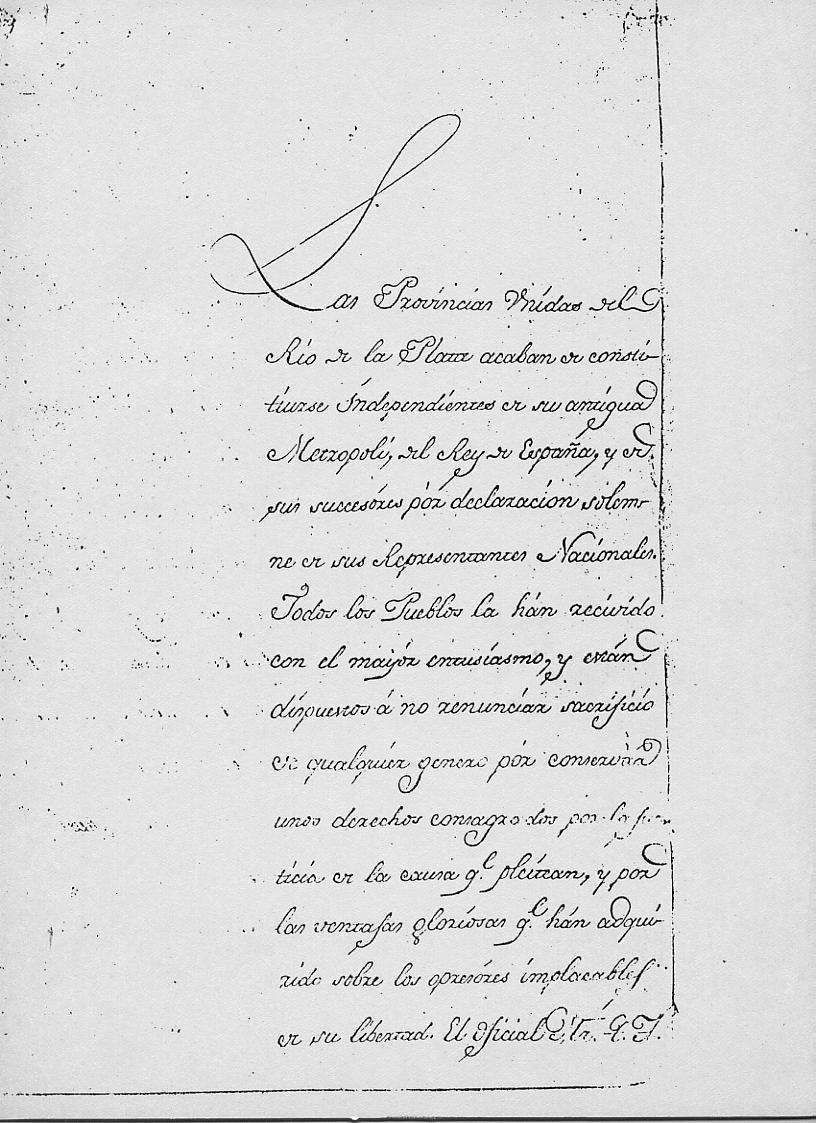 Las Provincias Unidas del
Rio de la Plata acaban de consti-
tuirse Independientes de su antigua
Metropoli, del Rey de España, y de
sus succesóres pór declaracion solem-
ne de sus Representantes Nacionales.
Todos los Pueblos la hán recivido
con el mayór entusiasmo, y están
dispuestos á no renunciár sacrificio
de qualquiér genero pór conservár
unos derechos consagrados por la jus-
ticia de la causa q.e pleitean, y por
las ventajas gloriosas q.e hán adqui-
rido sobre los opresóres implacables
de su libertad. El Oficial